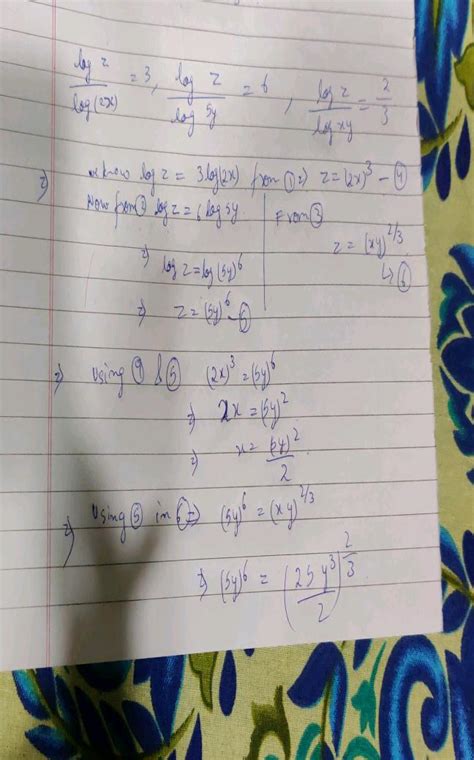 log z / log(2x) = 3, log z / log 5y = 6, log z / log xy = 2/3
⇒ we know log z = 3log(2x) from ① ⇒ z = (2x)³ – ④
Now from ② log z = 6 log 5y
⇒ log z = log (5y)⁶
⇒ z = (5y)⁶ – ⑤
From ③
z = (xy)^2/3
↳ ⑥
⇒ using ④ & ⑤ (2x)³ = (5y)⁶
⇒ 2x = (5y)²
⇒ x = (5y)²/2
⇒ Using ⑤ in ⑥ ⇒ (5y)⁶ = (xy)^2/3
⇒ (5y)⁶ = (25y³/2)^2/3